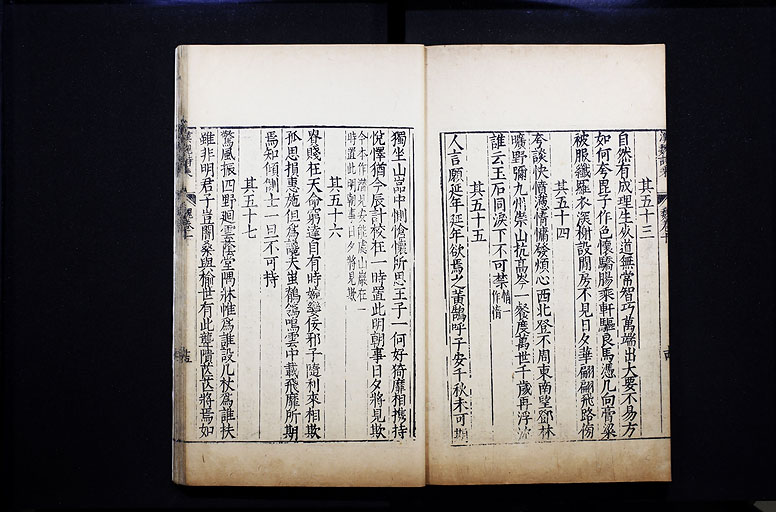 其五十三
自然有成理生死道無常智巧萬端出大要不易方
如何夸毘子作色懷驕腸乘軒驅良馬憑几向膏粱
被服纖羅衣深榭設閒房不見日夕華翩翩飛路傍
其五十四
夸談快憤懣情慵發煩心西北登不周東南望鄧林
曠野彌九州崇山抗高岑一餐度萬世千歲再浮沉
誰云玉石同淚下不可禁情一作惰
其五十五
人言願延年延年欲焉之黃鵠呼子安千秋未可期
獨坐山嵓中惻愴懷所思王子一何好猗靡相攜持
悅懌猶今辰計校在一時置此明朝事日夕將見欺
今本作潛見安能處山巖在一
時置此明朝事日夕將見欺
其五十六
貴賤在天命窮達自有時婉孌佞邪子隨利來相欺
孤思損惠施但為讒夫蚩鶺鴒鳴雲中載飛靡所期
焉知傾側士一旦不可持
其五十七
驚風振四野迴雲蔭堂隅牀帷為誰設几杖為誰扶
雖非明君子豈闇桑與榆世有此聾聵芒芒將焉如